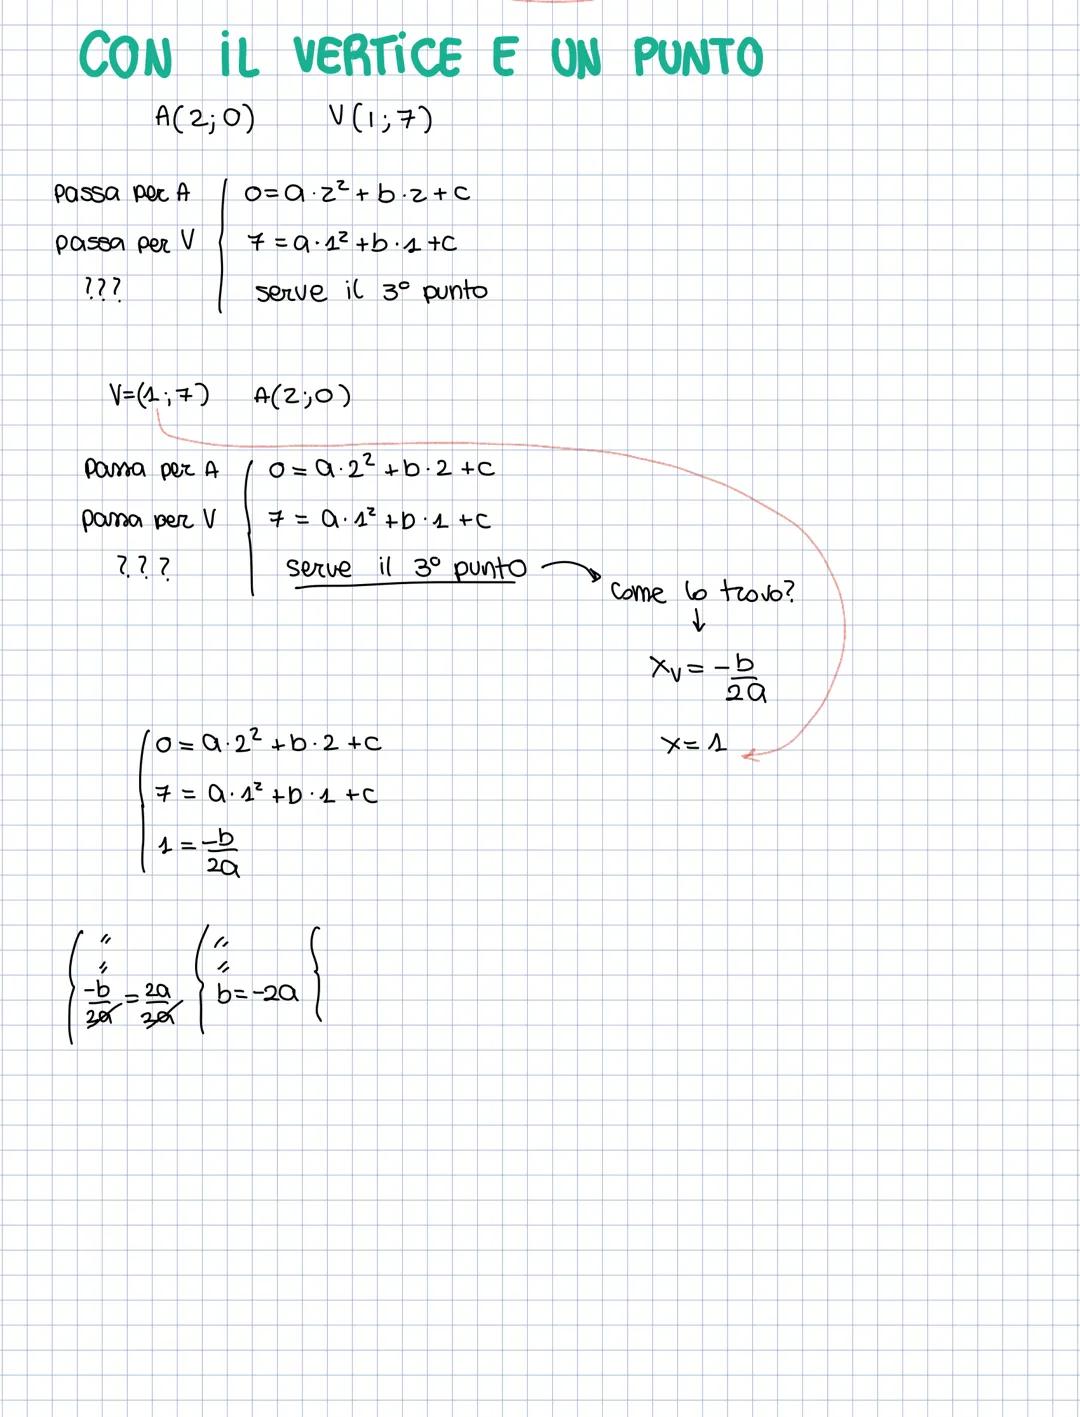 CON iL VERTiCE E UN PUNTO
A(2;0) V(1;7)
passa per A 0=a·2²+b·2+c
passa per V 7=a·1²+b·1+c
??? serve il 3° punto
V=(1;7) A(2;0)
passa per A 0=a·2²+b·2+c
passa per V 7=a·1²+b·1+c
??? serve il 3° punto
come lo trovo?
↓
xᵥ=-b/2a
0=a·2²+b·2+c x=1
7=a·1²+b·1+c
1=-b/2a
" "
" "
-b/2a=2a/2a b=-2a